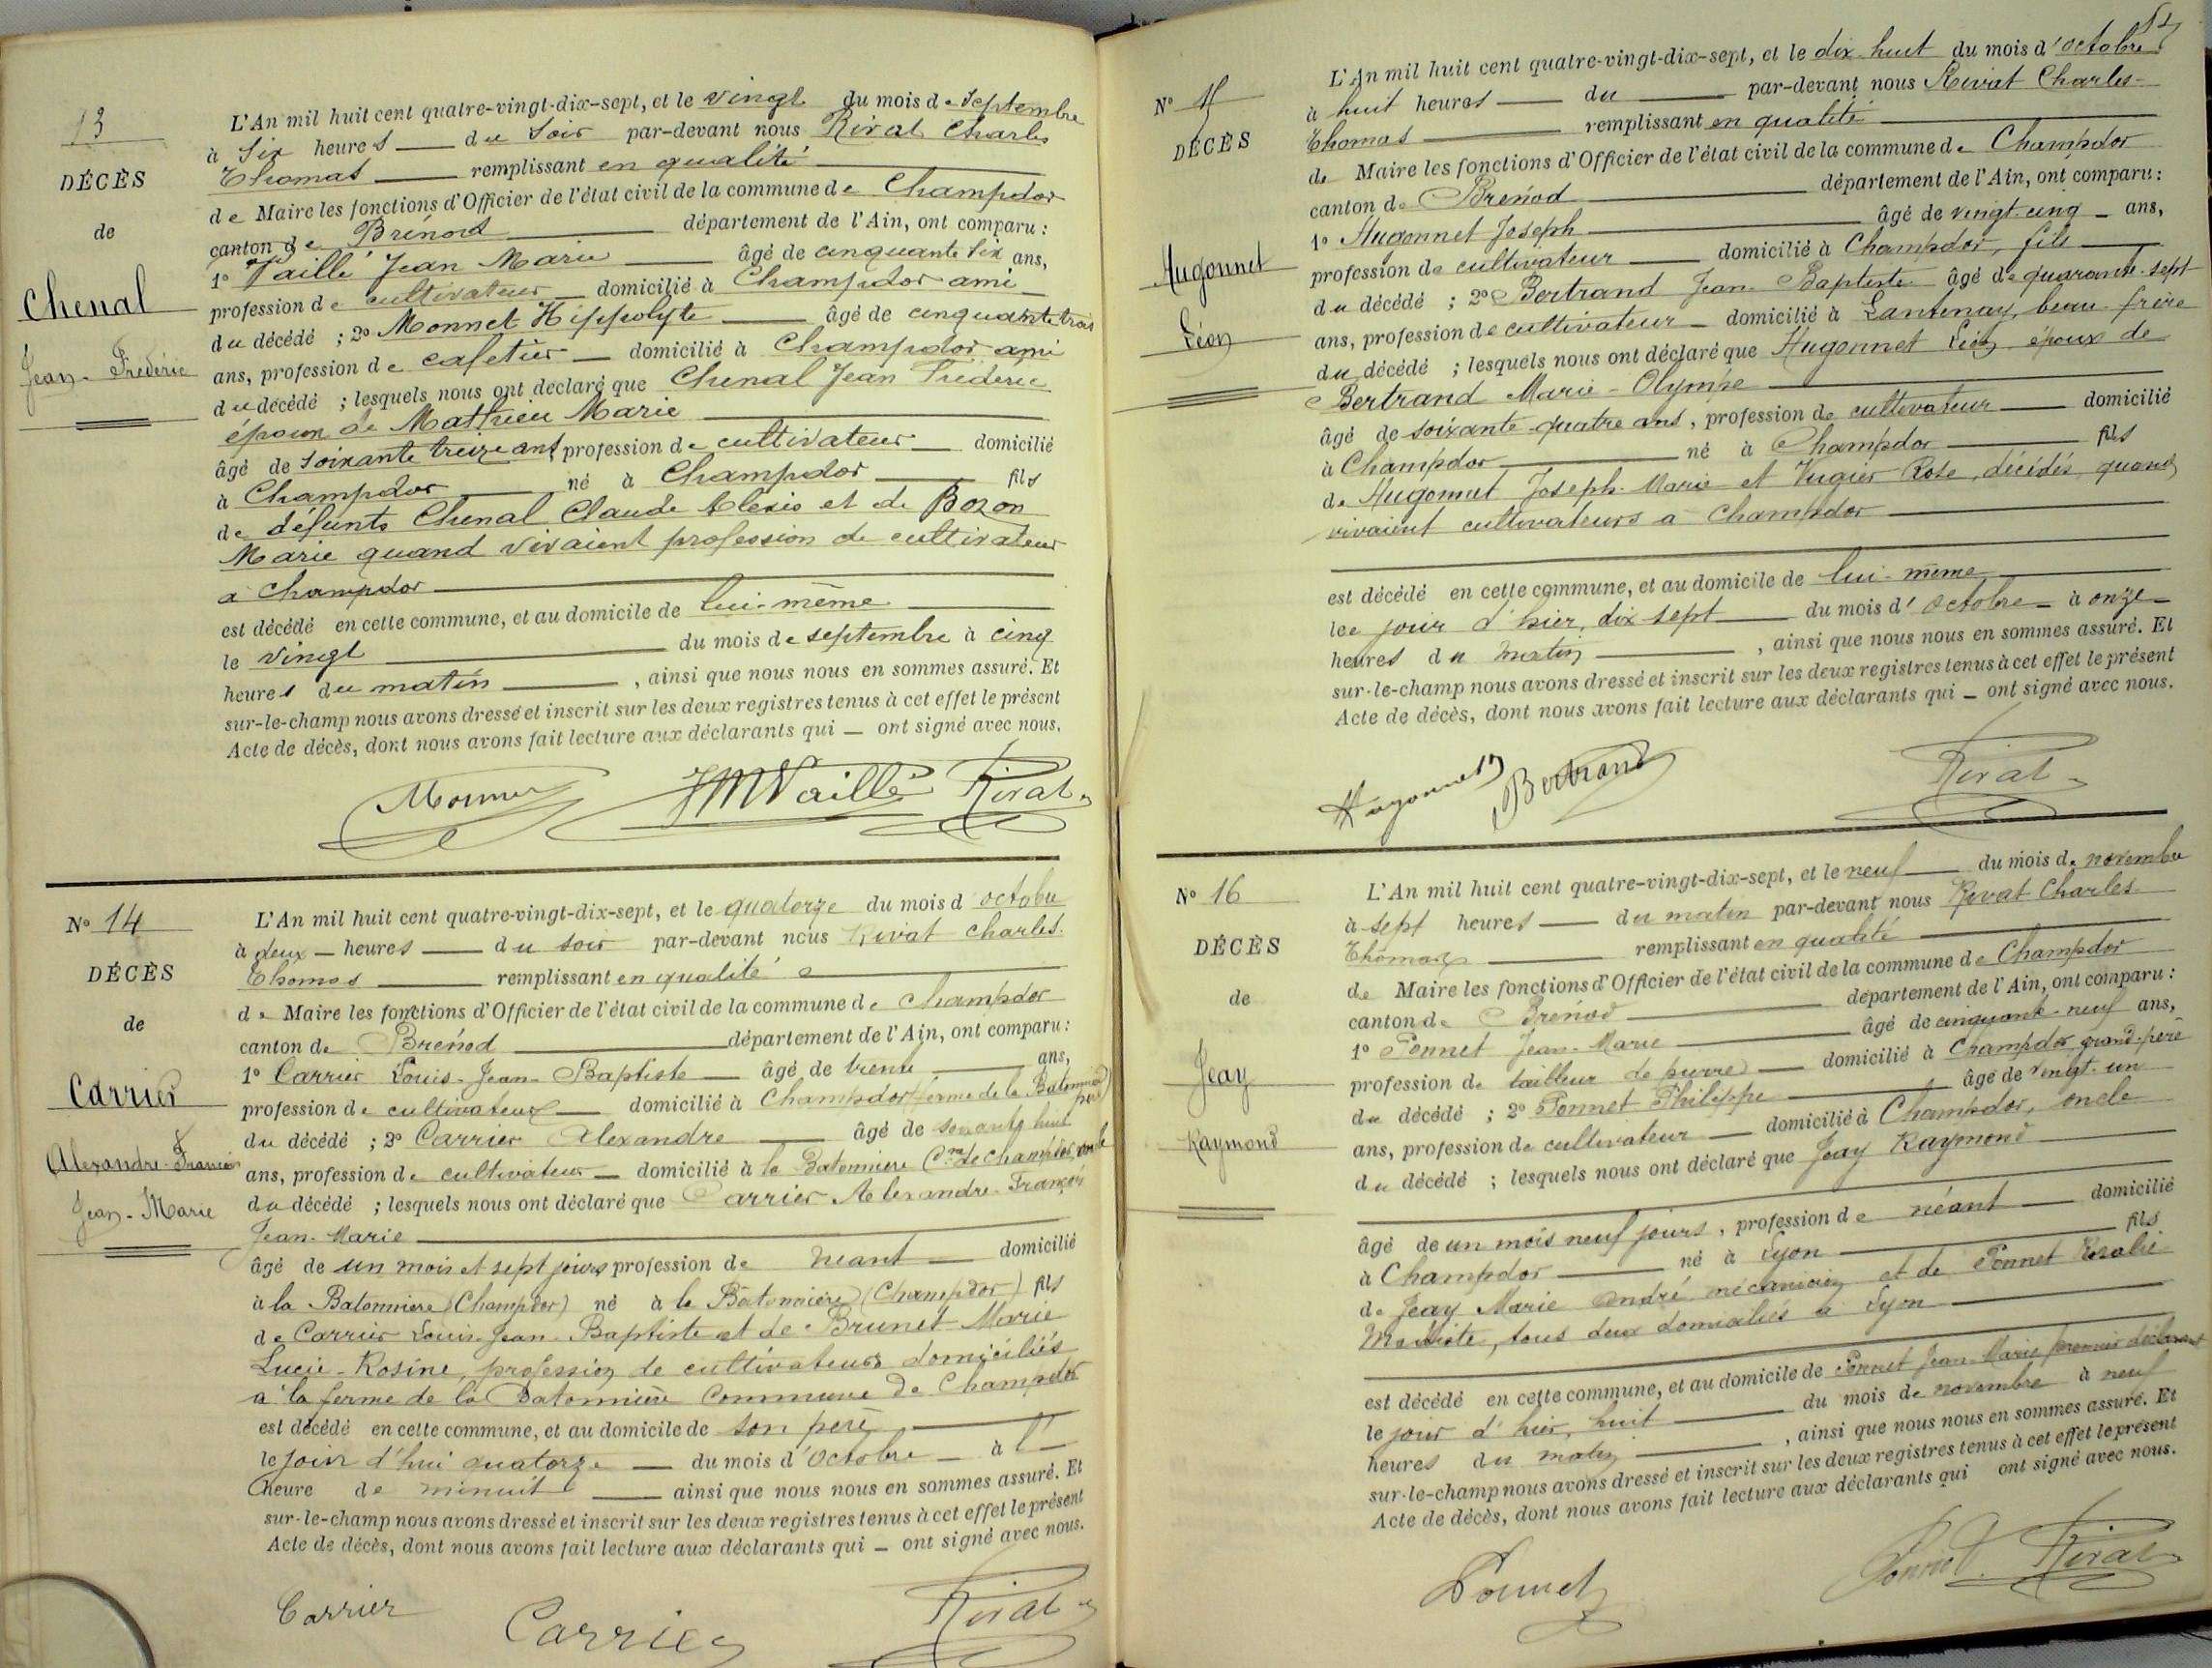 13
DÉCÈS
de
Chenal
Jean-Frédéric
L'An mil huit cent quatre-vingt-dix-sept, et le vingt du mois de Septembre
à Six heures du Soir par-devant nous Rivat Charles
Thomas remplissant en qualité
de Maire les fonctions d'Officier de l'état civil de la commune de Champdor
canton de Brénod département de l'Ain, ont comparu :
1° Vaillé Jean Marie âgé de cinquante six ans,
profession de cultivateur domicilié à Champdor ami
du décédé ; 2° Monnet Hippolyte âgé de cinquante trois
ans, profession de cafetier domicilié à Champdor ami
du décédé ; lesquels nous ont déclaré que Chenal Jean Frédéric
époux de Mathieu Marie
âgé de soixante treize ans, profession de cultivateur domicilié
à Champdor né à Champdor fils
de défunts Chenal Claude Alexis et de Bozon
Marie quand vivaient profession de cultivateur
a Champdor
est décédé en cette commune, et au domicile de lui-même
le vingt du mois de septembre à cinq
heures du matin , ainsi que nous nous en sommes assuré. Et
sur-le-champ nous avons dressé et inscrit sur les deux registres tenus à cet effet le présent
Acte de décès, dont nous avons fait lecture aux déclarants qui ont signé avec nous.
Monnet JM Vaillé Rivat
N° 14
DÉCÈS
de
Carrier
Alexandre-François
Jean-Marie
L'An mil huit cent quatre-vingt-dix-sept, et le quatorze du mois d'octobre
à deux heures du soir par-devant nous Rivat Charles
Thomas remplissant en qualité
de Maire les fonctions d'Officier de l'état civil de la commune de Champdor
canton de Brénod département de l'Ain, ont comparu :
1° Carrier Louis-Jean-Baptiste âgé de trente ans,
profession de cultivateur domicilié à Champdor (ferme de la Batonnière) père
du décédé ; 2° Carrier Alexandre âgé de soixante huit
ans, profession de cultivateur domicilié à la Batonnière Cne de Champdor, oncle
du décédé ; lesquels nous ont déclaré que Carrier Alexandre-François
Jean-Marie
âgé de un mois et sept jours profession de néant domicilié
à la Batonnière (Champdor) né à la Batonnière (Champdor) fils
de Carrier Louis-Jean-Baptiste et de Brunet Marie
Lucie-Rosine, profession de cultivateurs domiciliés
à la ferme de la Batonnière commune de Champdor
est décédé en cette commune, et au domicile de son père
le jour d'hui quatorze du mois d'Octobre à l'
heure de minuit ainsi que nous nous en sommes assuré. Et
sur-le-champ nous avons dressé et inscrit sur les deux registres tenus à cet effet le présent
Acte de décès, dont nous avons fait lecture aux déclarants qui ont signé avec nous.
Carrier Carrier Rivat
N° 15
DÉCÈS
Hugonnet
Léon
L'An mil huit cent quatre-vingt-dix-sept, et le dix-huit du mois d'octobre
à huit heures du par-devant nous Rivat Charles-
Thomas remplissant en qualité
de Maire les fonctions d'Officier de l'état civil de la commune de Champdor
canton de Brénod département de l'Ain, ont comparu :
1° Hugonnet Joseph âgé de vingt-cinq ans,
profession de cultivateur domicilié à Champdor, fils
du décédé ; 2° Bertrand Jean-Baptiste âgé de quarante-sept
ans, profession de cultivateur domicilié à Lantenay, beau frère
du décédé ; lesquels nous ont déclaré que Hugonnet Léon époux de
Bertrand Marie-Olympe
âgé de soixante-quatre ans, profession de cultivateur domicilié
à Champdor né à Champdor fils
de Hugonnet Joseph-Marie et Rose, décédés, quand
vivaient cultivateurs à Champdor
est décédé en cette commune, et au domicile de lui-même
le jour d'hier, dix sept du mois d'Octobre à onze
heures du matin , ainsi que nous nous en sommes assuré. Et
sur-le-champ nous avons dressé et inscrit sur les deux registres tenus à cet effet le présent
Acte de décès, dont nous avons fait lecture aux déclarants qui ont signé avec nous.
Hugonnet Bertrand Rivat
N° 16
DÉCÈS
de
Jeay
Raymond
L'An mil huit cent quatre-vingt-dix-sept, et le neuf du mois de novembre
à sept heures du matin par-devant nous Rivat Charles
Thomas remplissant en qualité
de Maire les fonctions d'Officier de l'état civil de la commune de Champdor
canton de Brénod département de l'Ain, ont comparu :
1° Ponnet Jean-Marie âgé de cinquante-neuf ans,
profession de tailleur de pierre domicilié à Champdor, grand-père
du décédé ; 2° Ponnet Philippe âgé de vingt-un
ans, profession de cultivateur domicilié à Champdor, oncle
du décédé ; lesquels nous ont déclaré que Jeay Raymond
âgé de un mois neuf jours, profession de néant domicilié
à Champdor né à Lyon fils
de Jeay Marie André mécanicien et de Ponnet Rosalie
Modiste, tous deux domiciliés à Lyon
est décédé en cette commune, et au domicile de Ponnet Jean-Marie premier déclarant
le jour d'hier, huit du mois de novembre à neuf
heures du matin , ainsi que nous nous en sommes assuré. Et
sur-le-champ nous avons dressé et inscrit sur les deux registres tenus à cet effet le présent
Acte de décès, dont nous avons fait lecture aux déclarants qui ont signé avec nous.
Ponnet Ponnet Rivat